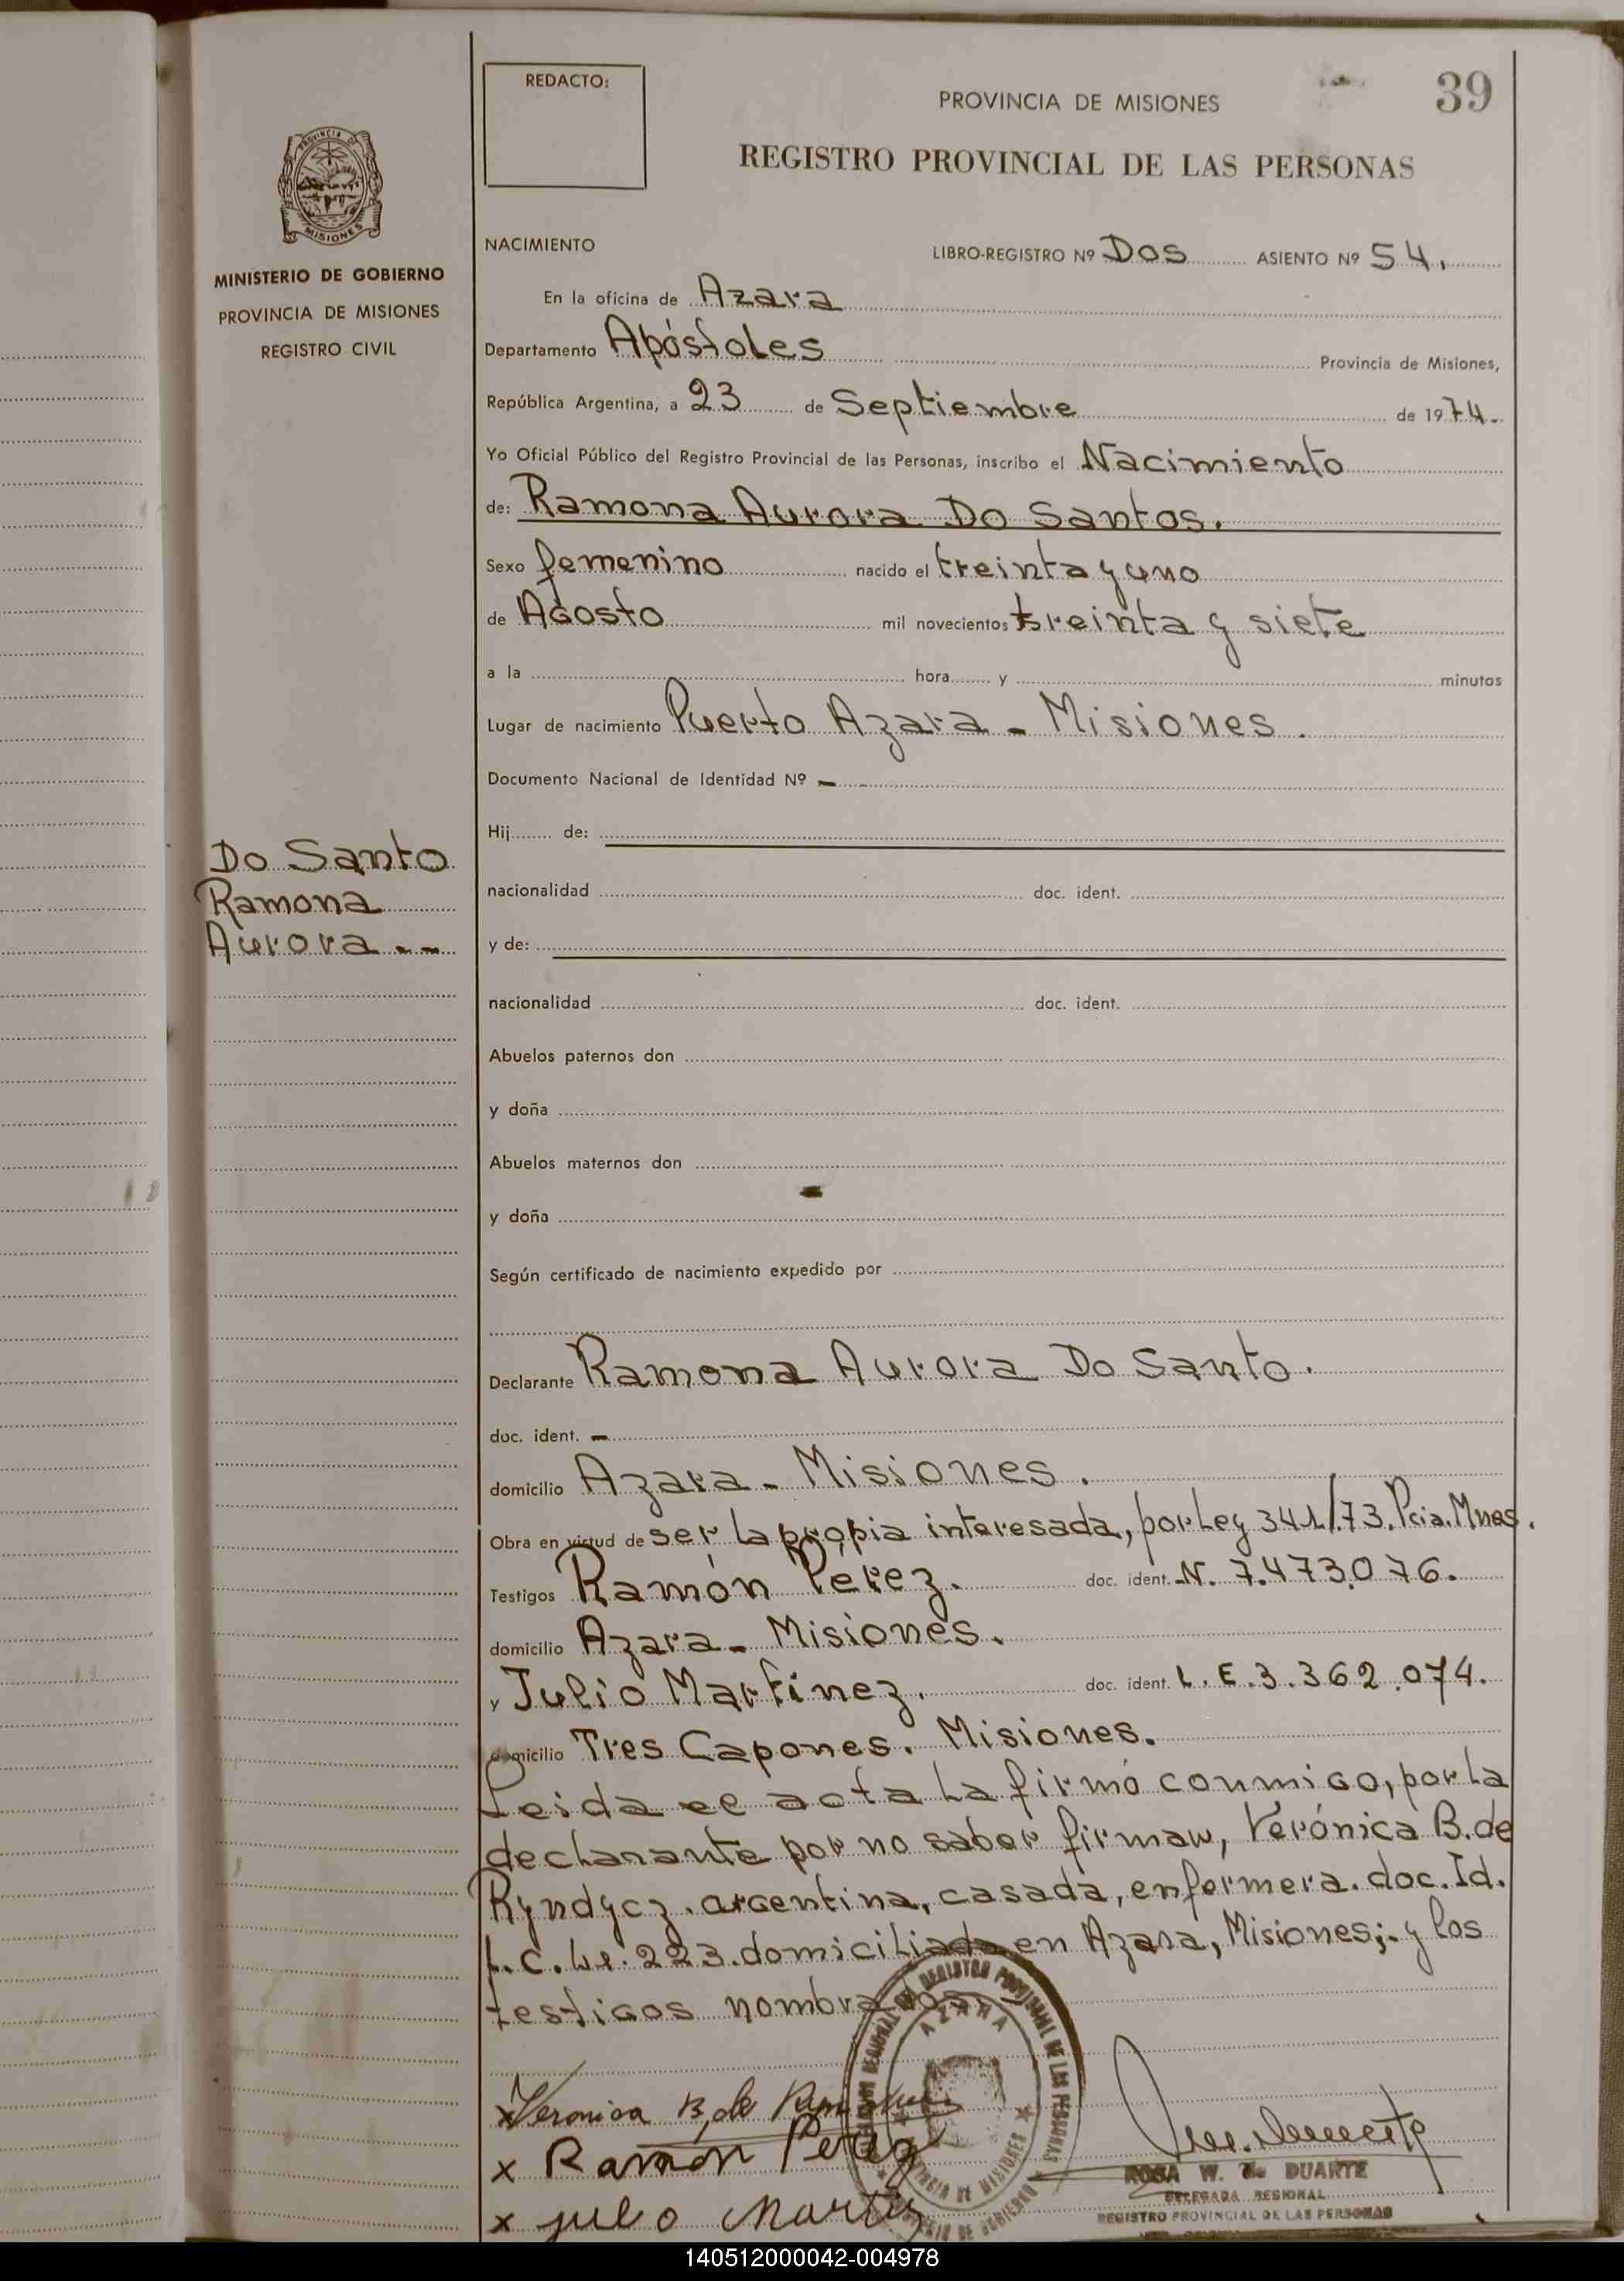 REDACTO:
PROVINCIA DE MISIONES
39
REGISTRO PROVINCIAL DE LAS PERSONAS
PROVINCIA DE
MISIONES
MINISTERIO DE GOBIERNO
PROVINCIA DE MISIONES
REGISTRO CIVIL
NACIMIENTO LIBRO-REGISTRO Nº Dos ASIENTO Nº 54.
En la oficina de Azara
Departamento Apóstoles Provincia de Misiones,
República Argentina, a 23 de Septiembre de 1974.
Yo Oficial Público del Registro Provincial de las Personas, inscribo el Nacimiento
de: Ramona Aurora Do Santos.
Sexo femenino nacido el treinta y uno
de Agosto mil novecientos treinta y siete
a la hora y minutos
Lugar de nacimiento Puerto Azara - Misiones.
Documento Nacional de Identidad Nº -
Hij de:
Do Santo
Ramona
Aurora - -
nacionalidad doc. ident.
y de:
nacionalidad doc. ident.
Abuelos paternos don
y doña
Abuelos maternos don
y doña
Según certificado de nacimiento expedido por
Declarante Ramona Aurora Do Santo.
doc. ident. -
domicilio Azara - Misiones.
Obra en virtud de ser la propia interesada, por Ley 341/.73. Pcia. Mnes.
Testigos Ramón Pérez. doc. ident. N. 7.473.076.
domicilio Azara - Misiones.
y Julio Martínez. doc. ident. L.E.3.362.074.
domicilio Tres Capones. Misiones.
Leida el acta la firmó conmigo, por la
declarante por no saber firmar, Verónica B. de
Ryndycz. argentina, casada, enfermera. doc. Id.
L.C. 223. domiciliada en Azara, Misiones;- y los
testigos nombrados
AZARA
x Veronica B. de
x Ramón Perez
x Julio
ROSA W. de DUARTE
DELEGADA REGIONAL
REGISTRO PROVINCIAL DE LAS PERSONAS
140512000042-004978